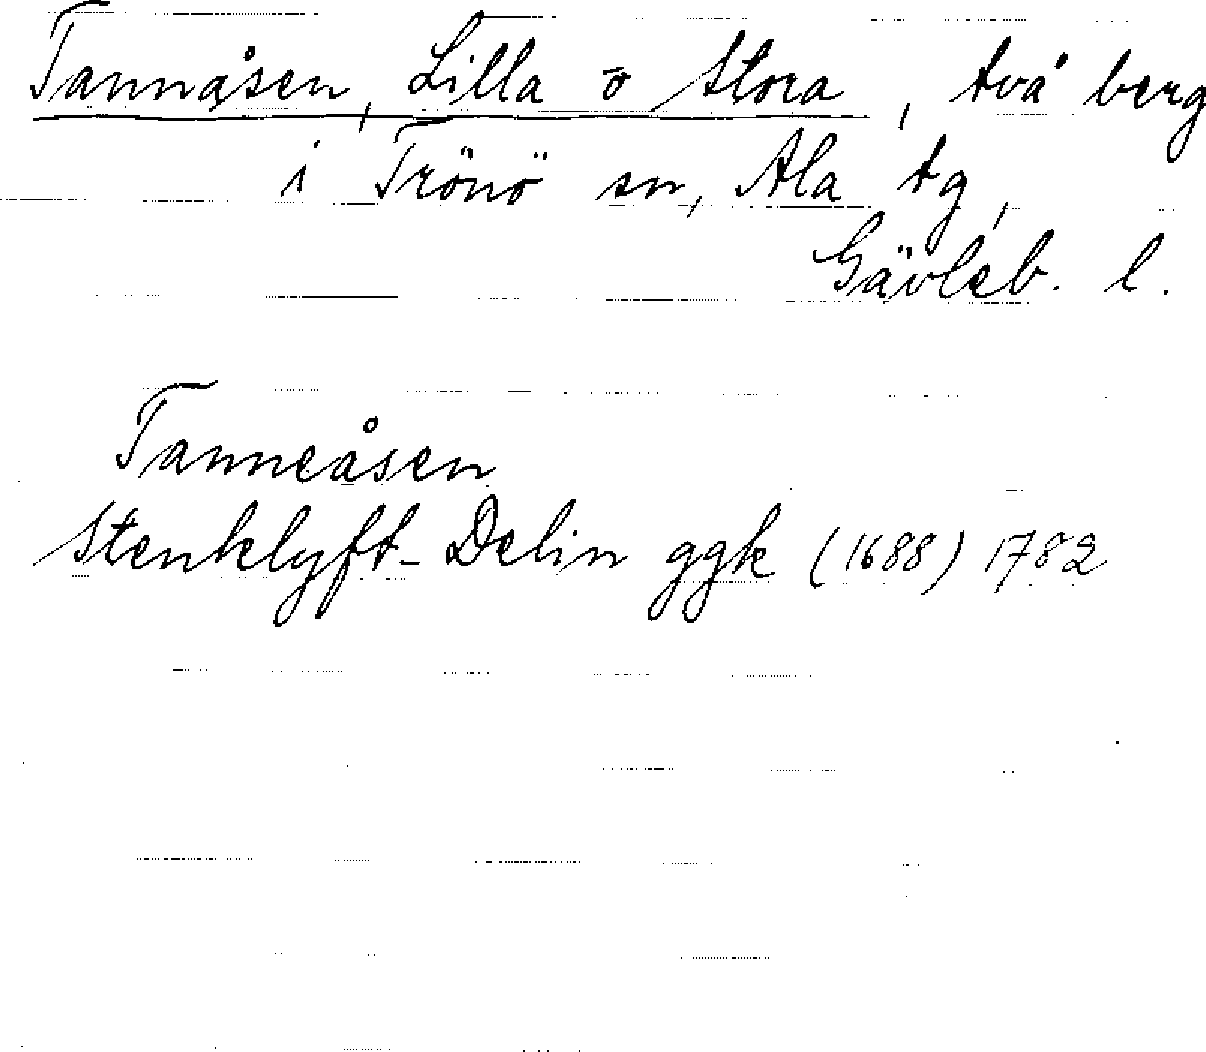 Tannåsen, Lilla o Stora, två berg
i Trönö sn, Ala tg,
Gävleb. l.
Tanneåsen
Stenklyft-Delin ggk (1688) 1782